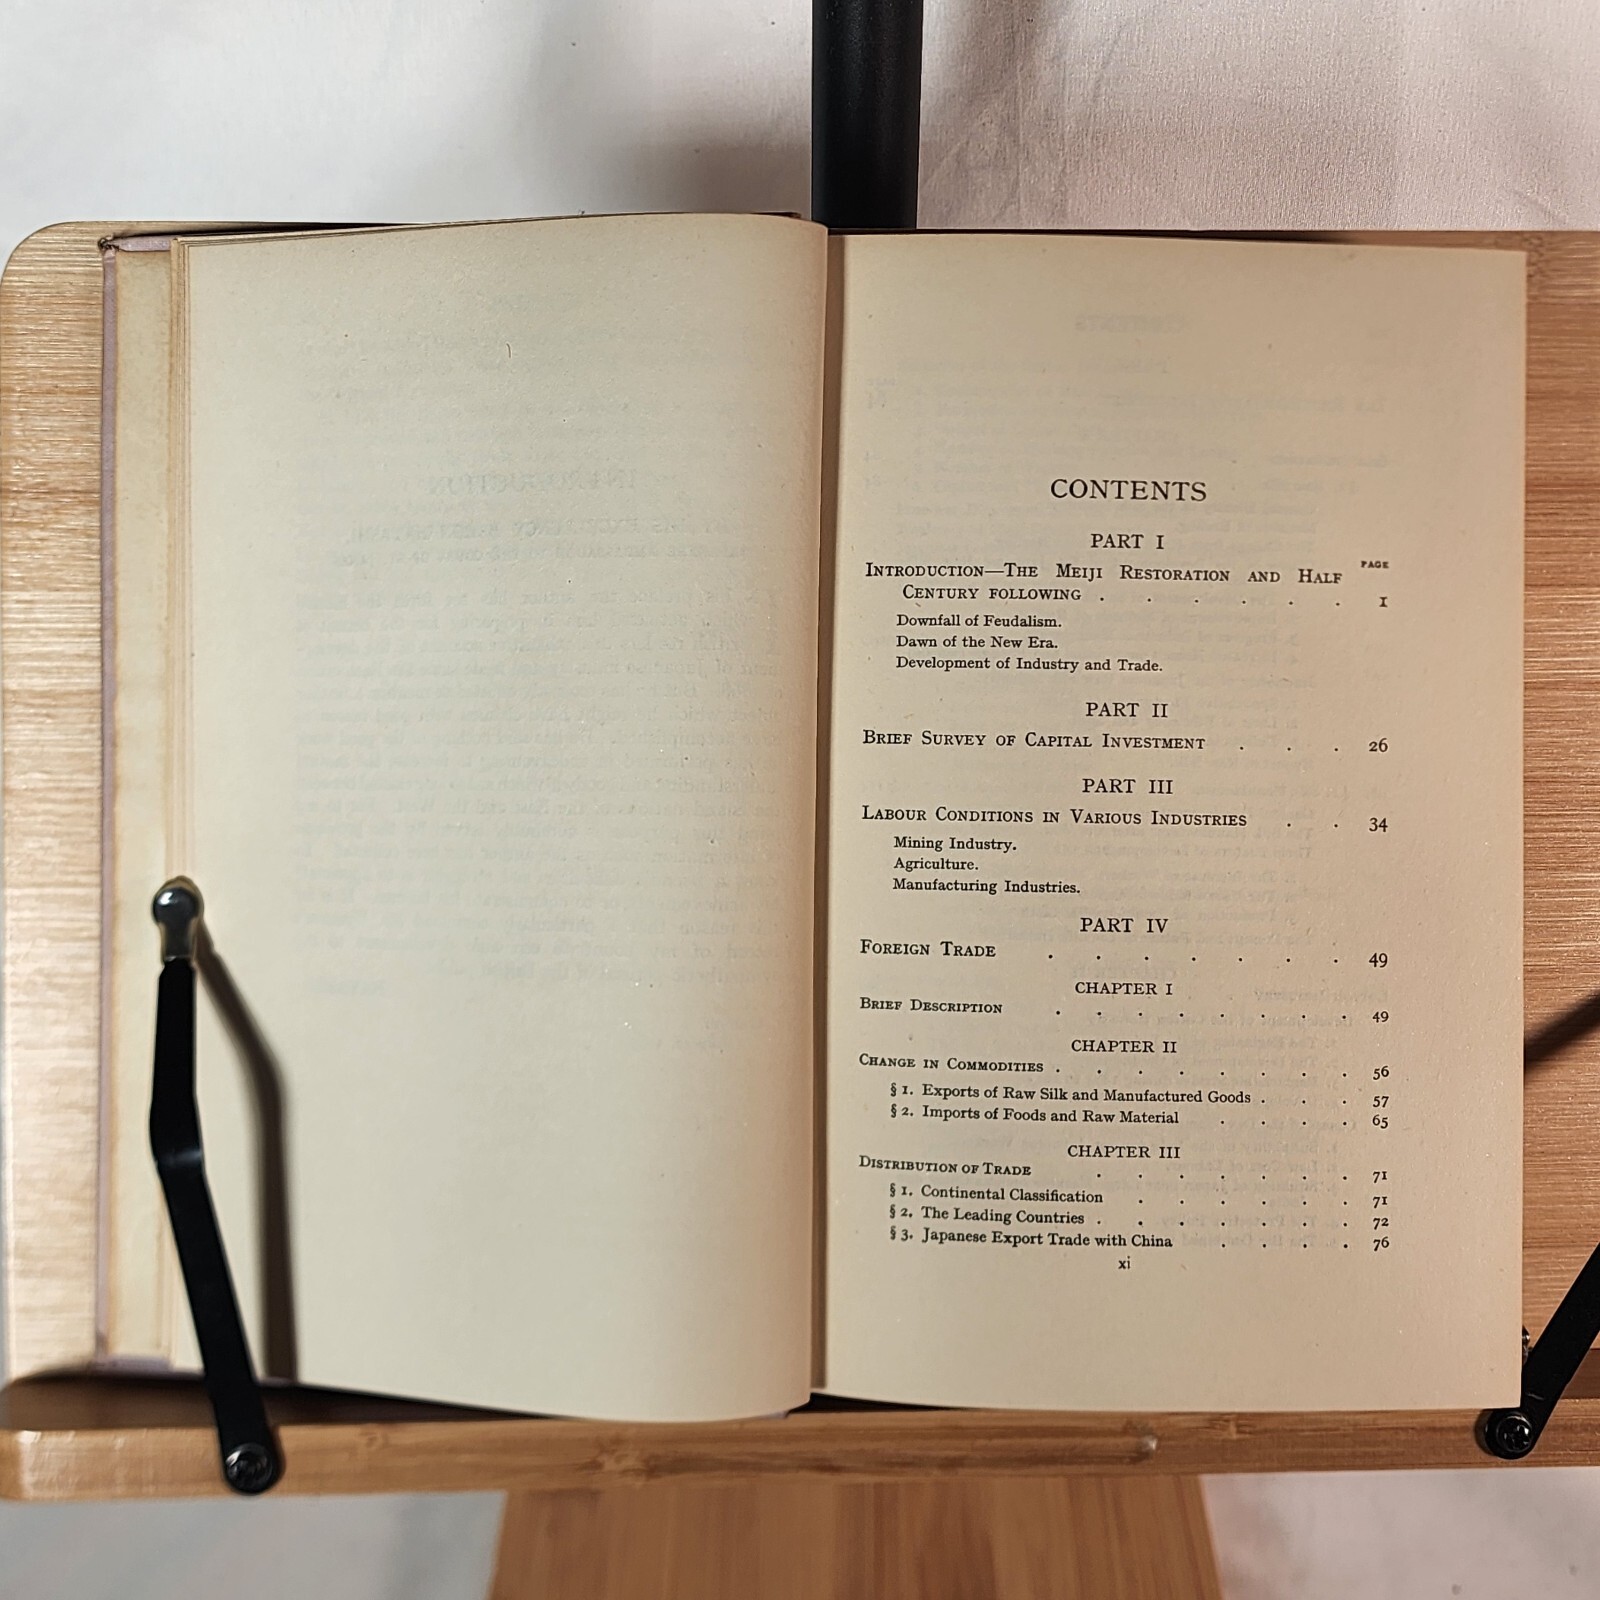 CONTENTS
PART I
PAGE
INTRODUCTION—THE MEIJI RESTORATION AND HALF
CENTURY FOLLOWING . . . . . . 1
Downfall of Feudalism.
Dawn of the New Era.
Development of Industry and Trade.
PART II
BRIEF SURVEY OF CAPITAL INVESTMENT . . . 26
PART III
LABOUR CONDITIONS IN VARIOUS INDUSTRIES . . 34
Mining Industry.
Agriculture.
Manufacturing Industries.
PART IV
FOREIGN TRADE . . . . . . . 49
CHAPTER I
BRIEF DESCRIPTION . . . . . . . . 49
CHAPTER II
CHANGE IN COMMODITIES . . . . . . . . 56
§ 1. Exports of Raw Silk and Manufactured Goods . . . 57
§ 2. Imports of Foods and Raw Material . . . . 65
CHAPTER III
DISTRIBUTION OF TRADE . . . . . . . 71
§ 1. Continental Classification . . . . . . 71
§ 2. The Leading Countries . . . . . . . 72
§ 3. Japanese Export Trade with China . . . . 76
xi